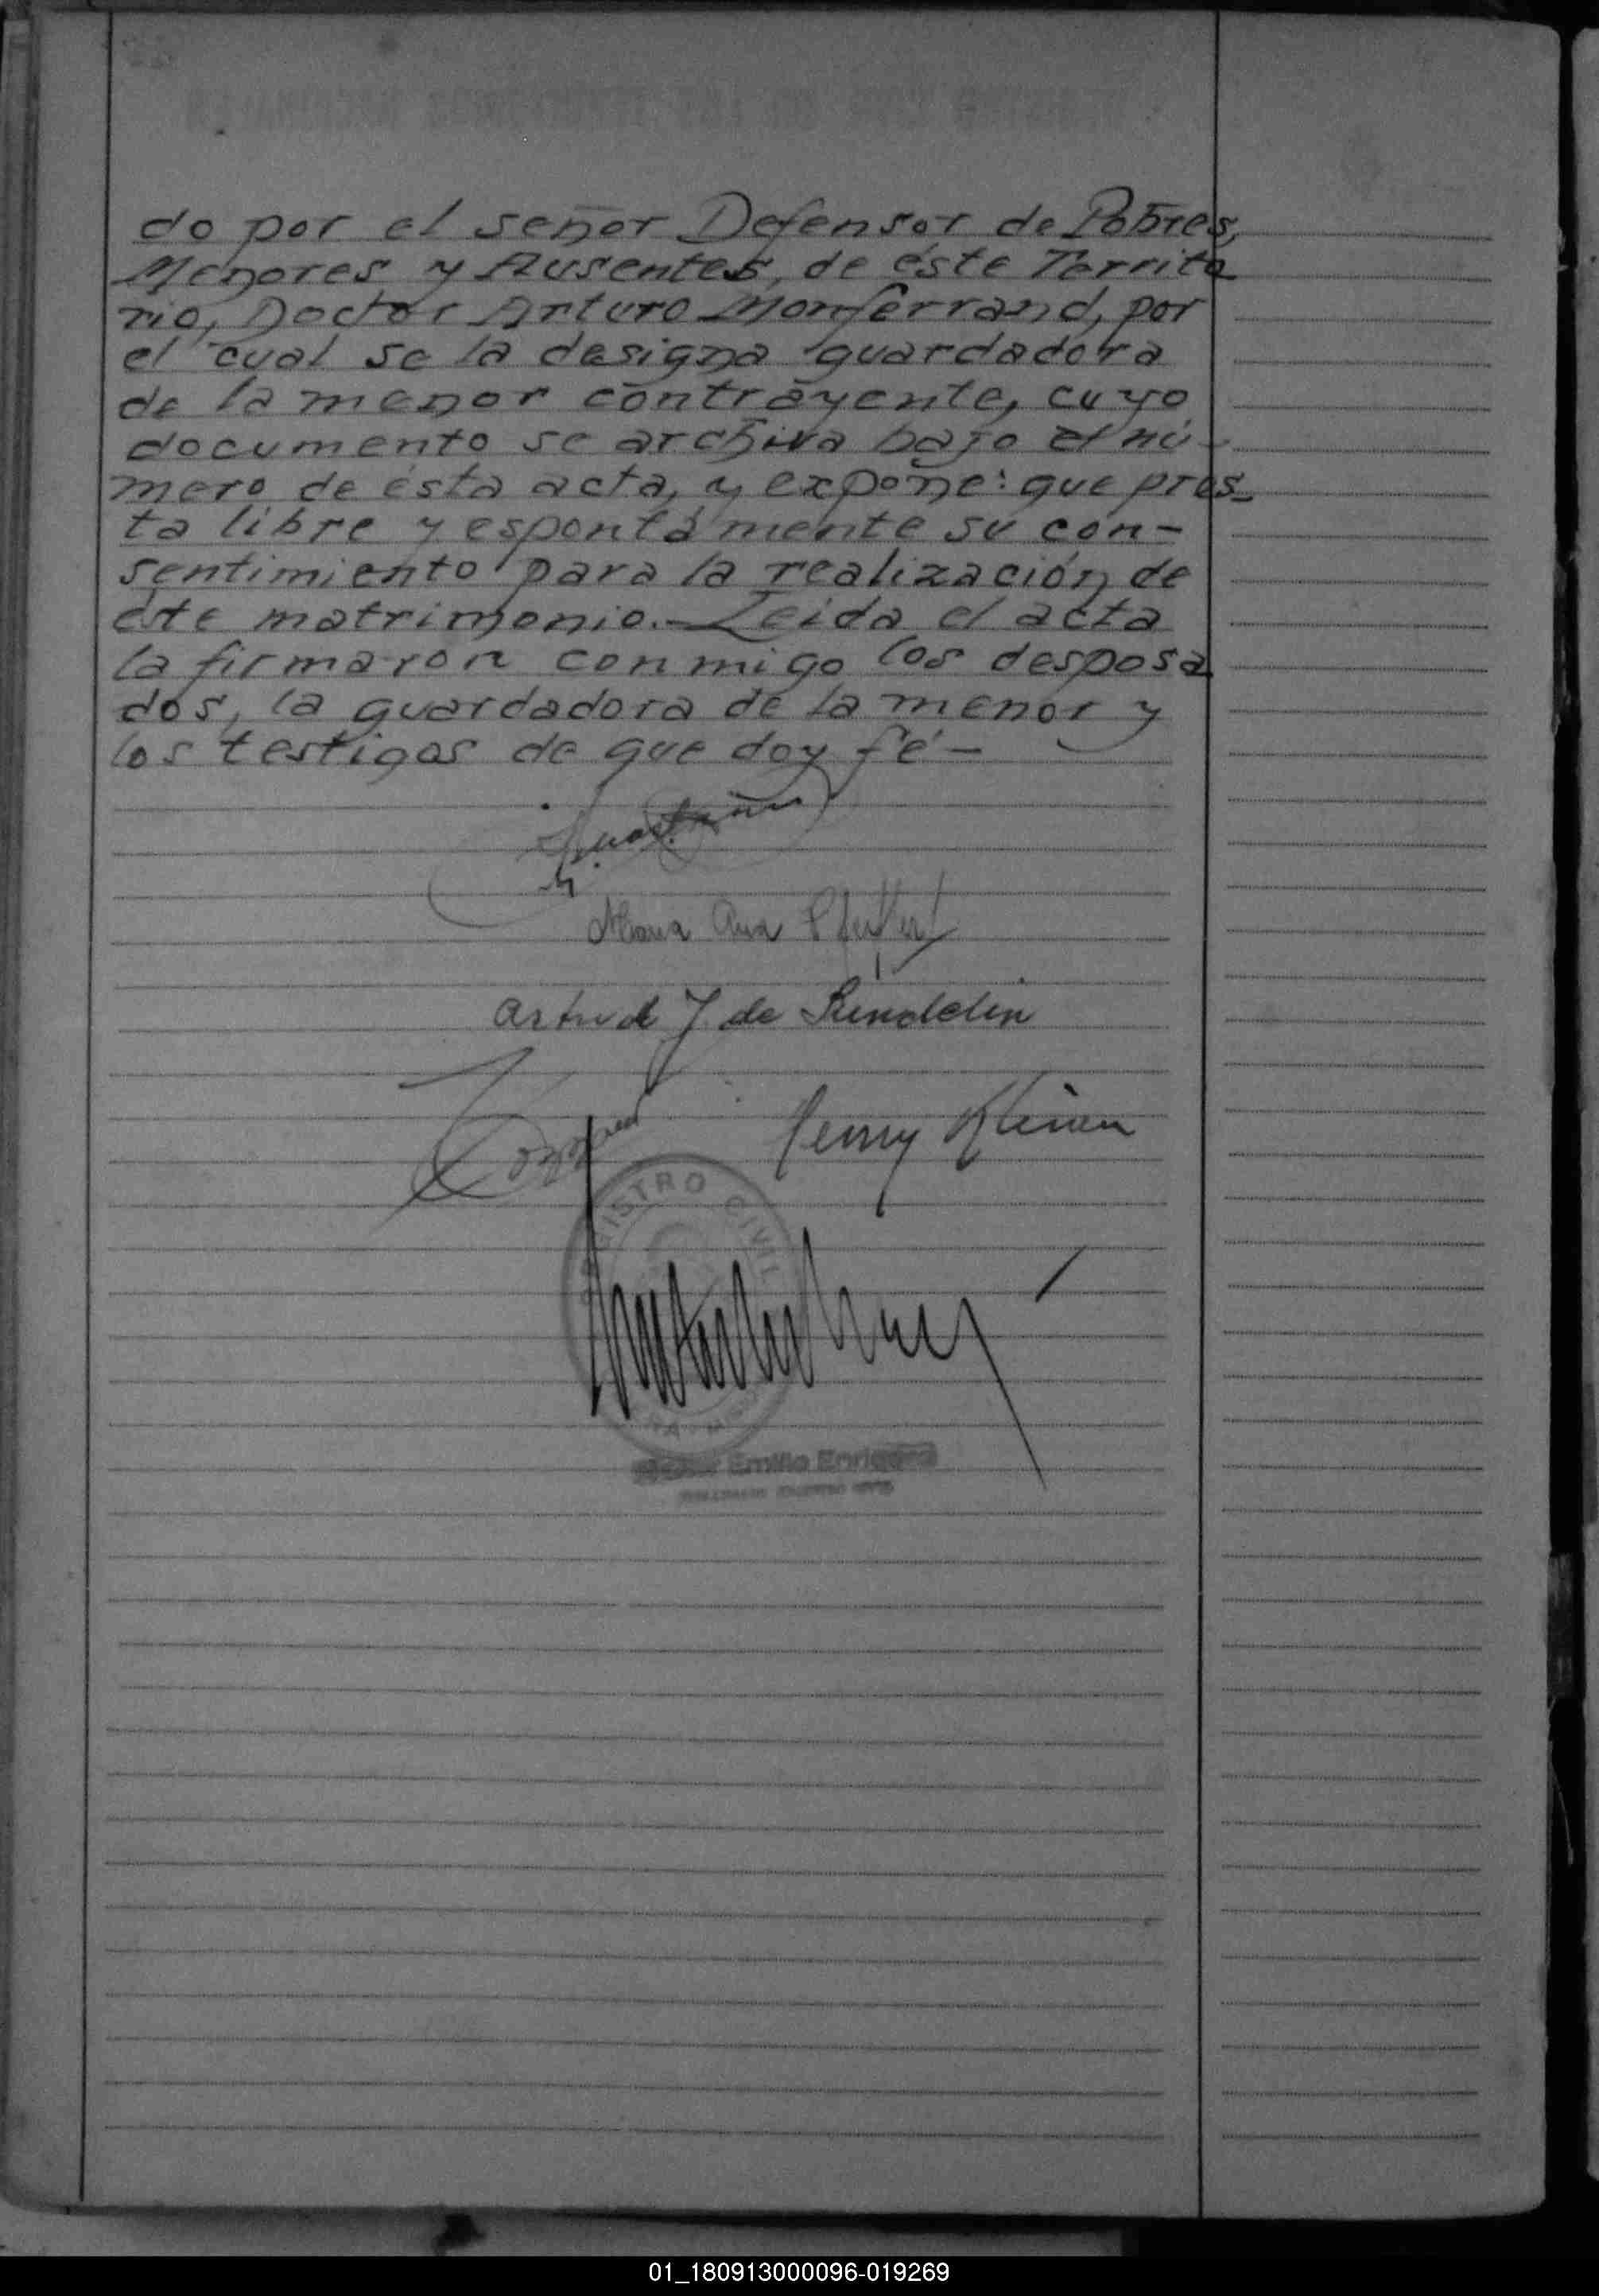 do por el señor Defensor de Pobres,
Menores y Ausentes, de éste Territo
rio, Doctor Arturo Monferrand, por
el cual se la designa guardadora
de la menor contrayente, cuyo
documento se archiva bajo el nú-
mero de ésta acta, y expone: que pres-
ta libre y espontámente su con-
sentimiento para la realización de
éste matrimonio.- Leida el acta
la firmaron conmigo los desposa
dos, la guardadora de la menor y
los testigos de que doy fé-
Maria Ana
Astrid J. de
Henny
REGISTRO CIVIL
Emilio Enrique
01_180913000096-019269